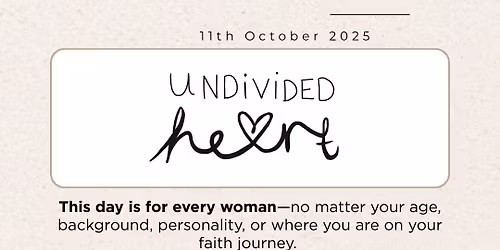 11th October 2025
UNDiViDED
heart
This day is for every woman—no matter your age,
background, personality, or where you are on your
faith journey.